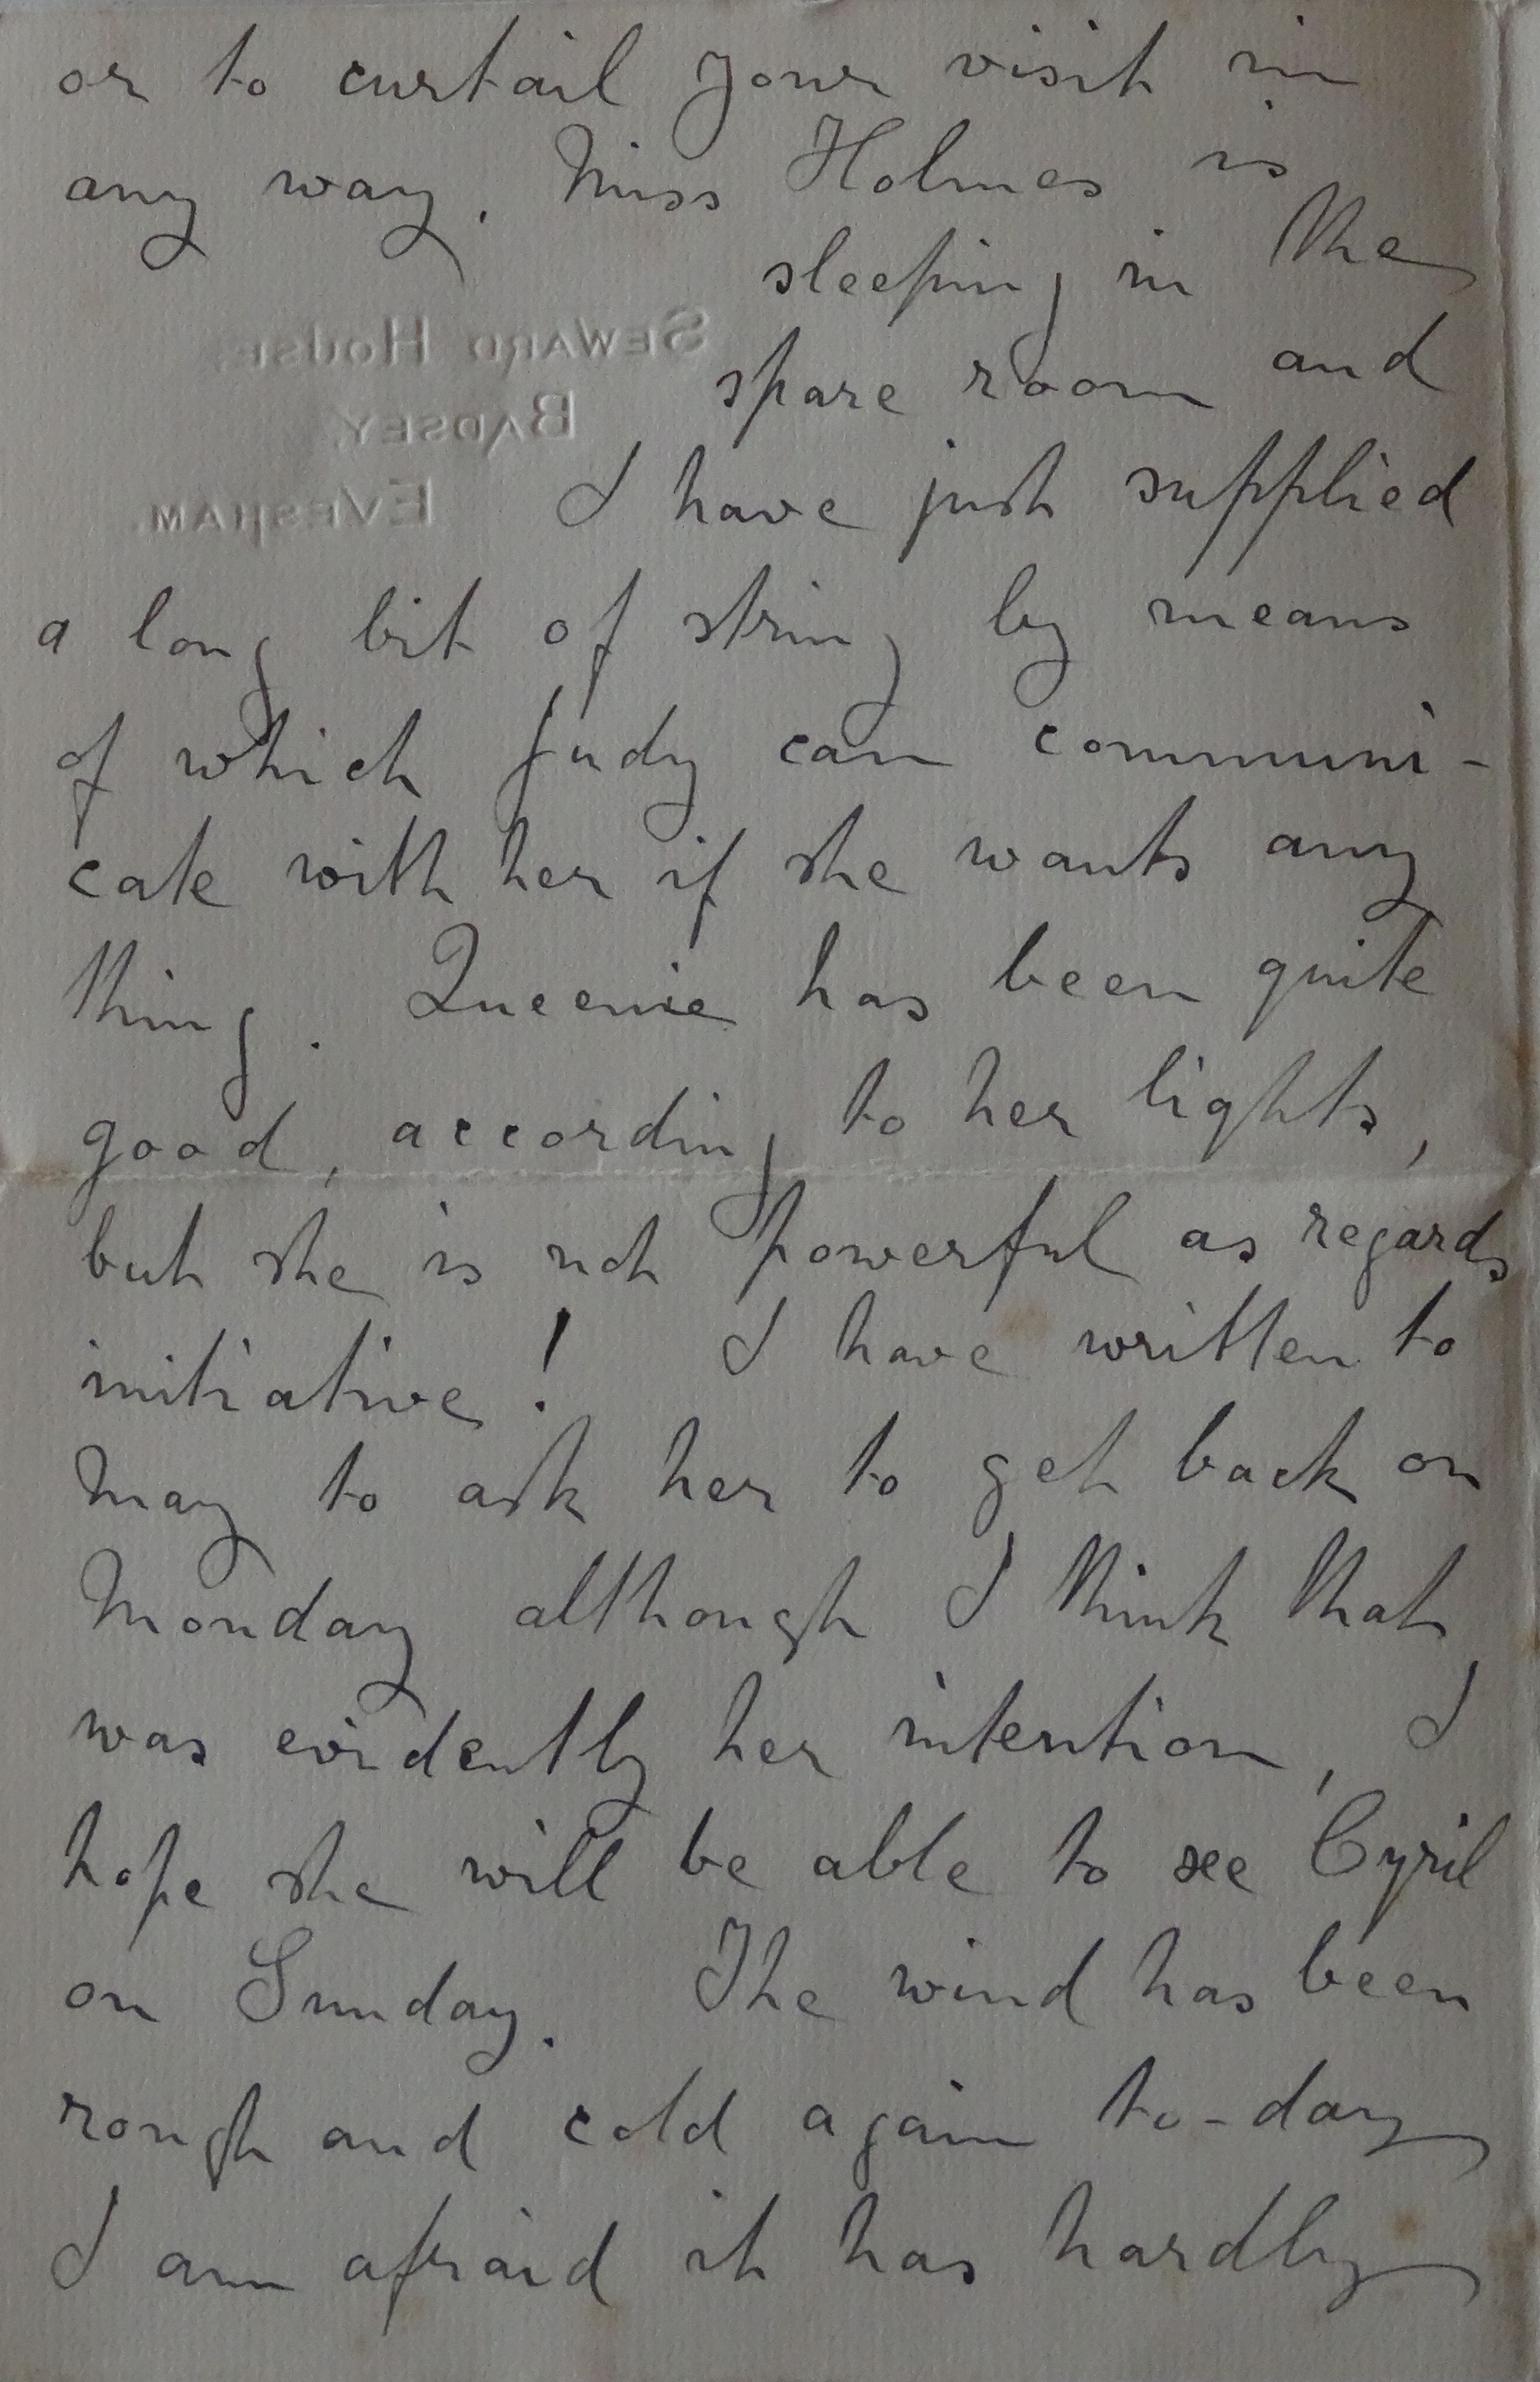 or to curtail your visit in
any way. Miss Holmes is
sleeping in the
SEWARD HOUSE,
spare room and
BADSEY,
I have just supplied
EVESHAM.
a long bit of string by means
of which Judy can communi-
cate with her if she wants any
thing. Queenie has been quite
good, according to her lights,
but she is not powerful as regards
initiative! I have written to
May to ask her to get back on
Monday although I think that
was evidently her intention, I
hope she will be able to see Cyril
on Sunday. The wind has been
rough and cold again to-day
I am afraid it has hardly